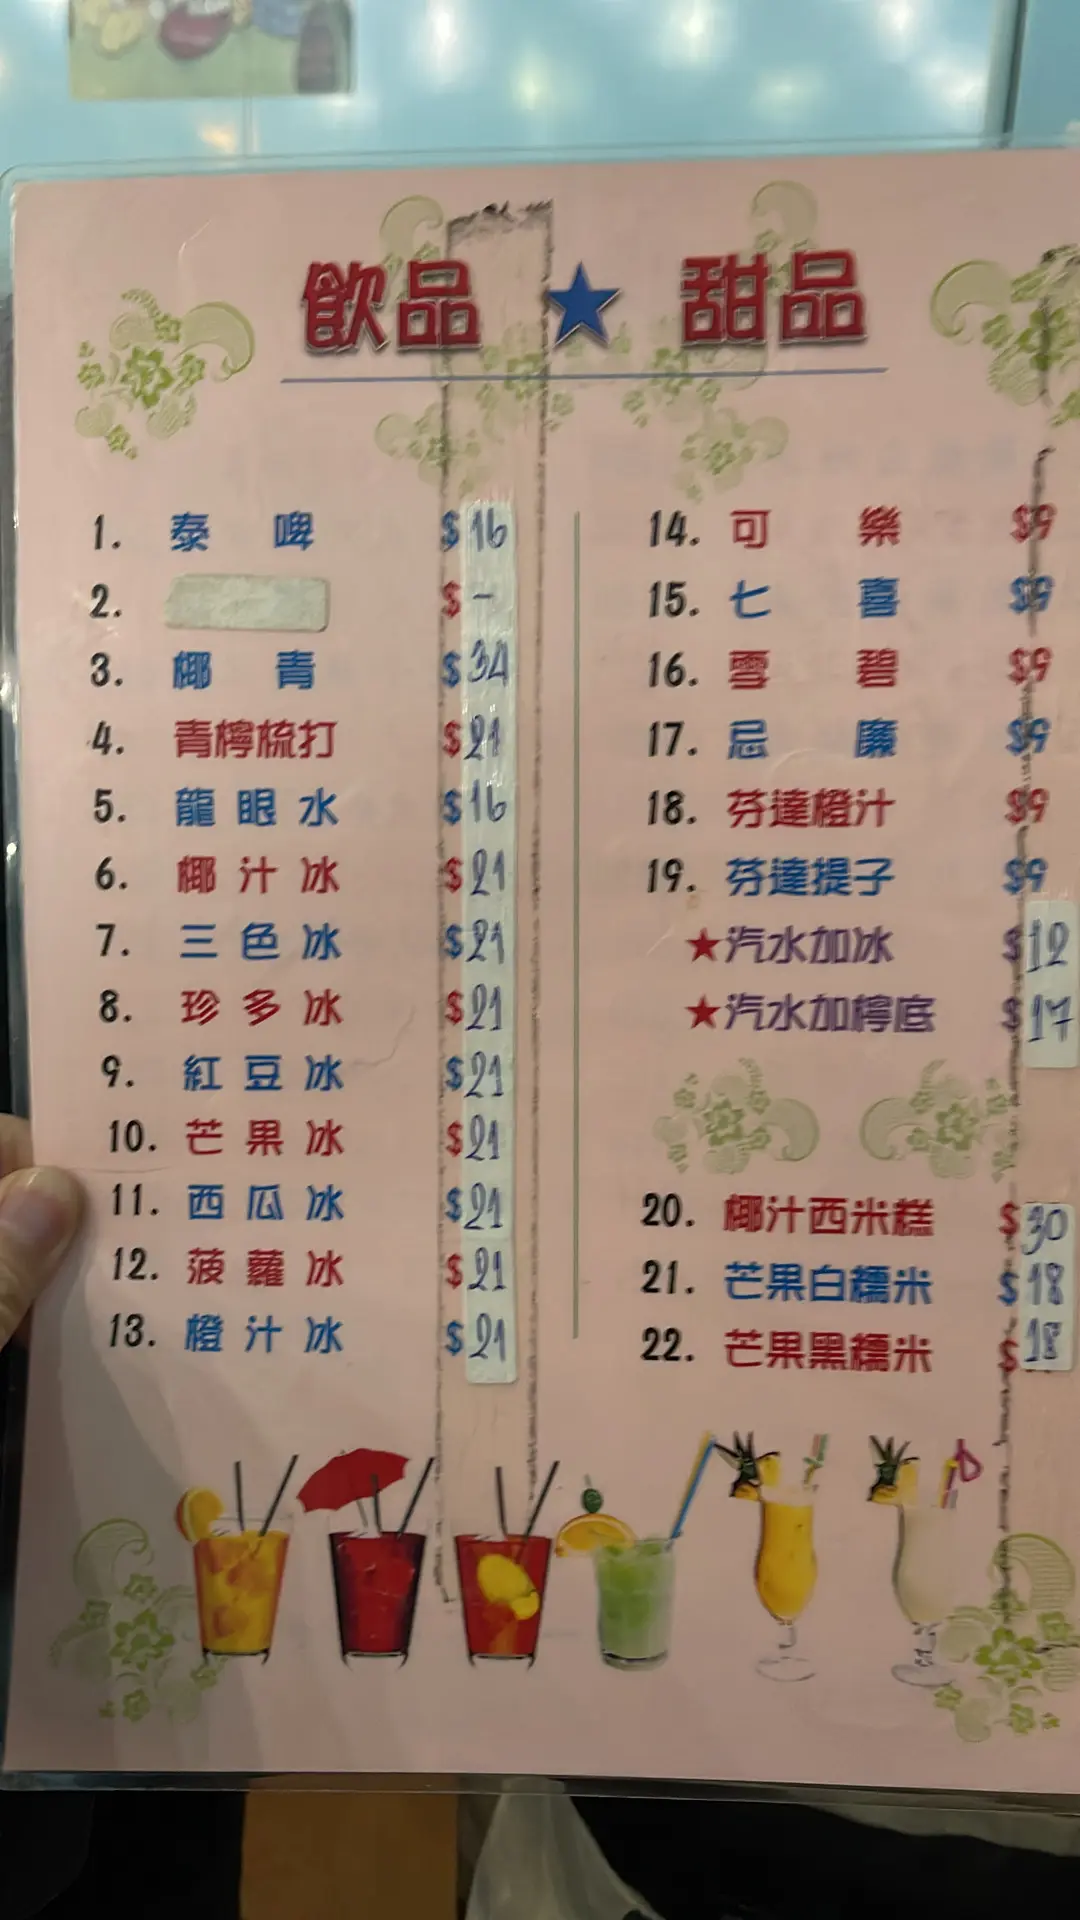 飲品★甜品
1. 泰啤 $16
2. $-
3. 椰青 $34
4. 青檸梳打 $21
5. 龍眼水 $16
6. 椰汁冰 $21
7. 三色冰 $21
8. 珍多冰 $21
9. 紅豆冰 $21
10. 芒果冰 $21
11. 西瓜冰 $21
12. 菠蘿冰 $21
13. 橙汁冰 $21
14. 可樂 $9
15. 七喜 $9
16. 雪碧 $9
17. 忌廉 $9
18. 芬達橙汁 $9
19. 芬達提子 $9
★汽水加冰 $12
★汽水加檸底 $17
20. 椰汁西米糕 $30
21. 芒果白糯米 $18
22. 芒果黑糯米 $18